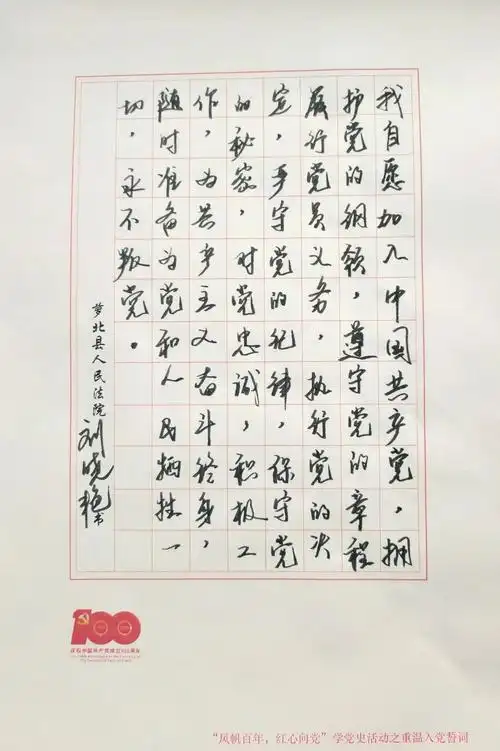 我自愿加入中国共产党，拥
护党的纲领，遵守党的章程
履行党员义务，执行党的决
定，严守党的纪律，保守党
的秘密，对党忠诚，积极工
作，为共产主义奋斗终身，
随时准备为党和人民牺牲一
切，永不叛党。
萝北县人民法院 刘晓艳书
100
庆祝中国共产党成立100周年
“风帆百年，红心向党”学党史活动之重温入党誓词